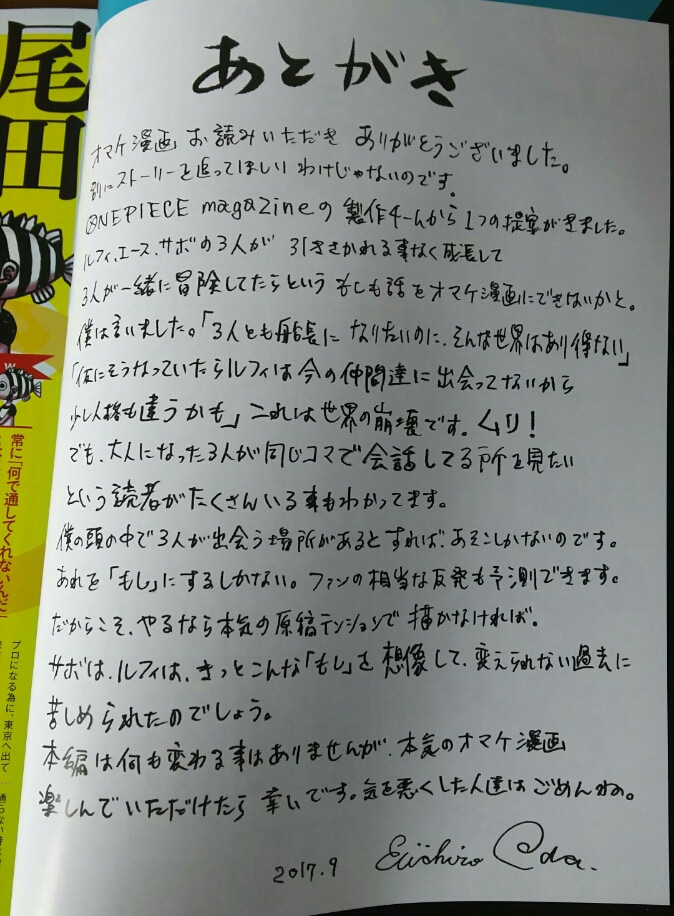 尾田
常に「何で通してくれないんだ」
プロになる為に、東京へ出て
あとがき
オマケ漫画 お読みいただき ありがとうございました。
別にストーリーを追ってほしい わけじゃないのです。
ONE PIECE magazineの 製作チームから 1つの提案がきました。
ルフィ、エース、サボの3人が 引きさかれる事なく成長して
3人が一緒に冒険してたらという もしも話をオマケ漫画にできないかと。
僕は言いました。「3人とも船長に なりたいのに、そんな世界はあり得ない」
「仮にそうなっていたらルフィは今の仲間達に出会ってないから
少し人格も違うかも」これは世界の崩壊です。ムリ!
でも、大人になった3人が同じコマで会話してる所を見たい
という読者がたくさんいる事もわかってます。
僕の頭の中で3人が出会う場所があるとすれば、あそこしかないのです。
あれを「もし」にするしかない。ファンの相当な反発も予測できます。
だからこそ、やるなら本気の原稿テンションで 描かなければ。
サボは、ルフィは、きっとこんな「もし」を 想像して、変えられない過去に
苦しめられたのでしょう。
本編は何も変わる事はありませんが、本気のオマケ漫画
楽しんでいただけたら 幸いです。気を悪くした人達は ごめんね。
2017.9 Eiichiro Oda.